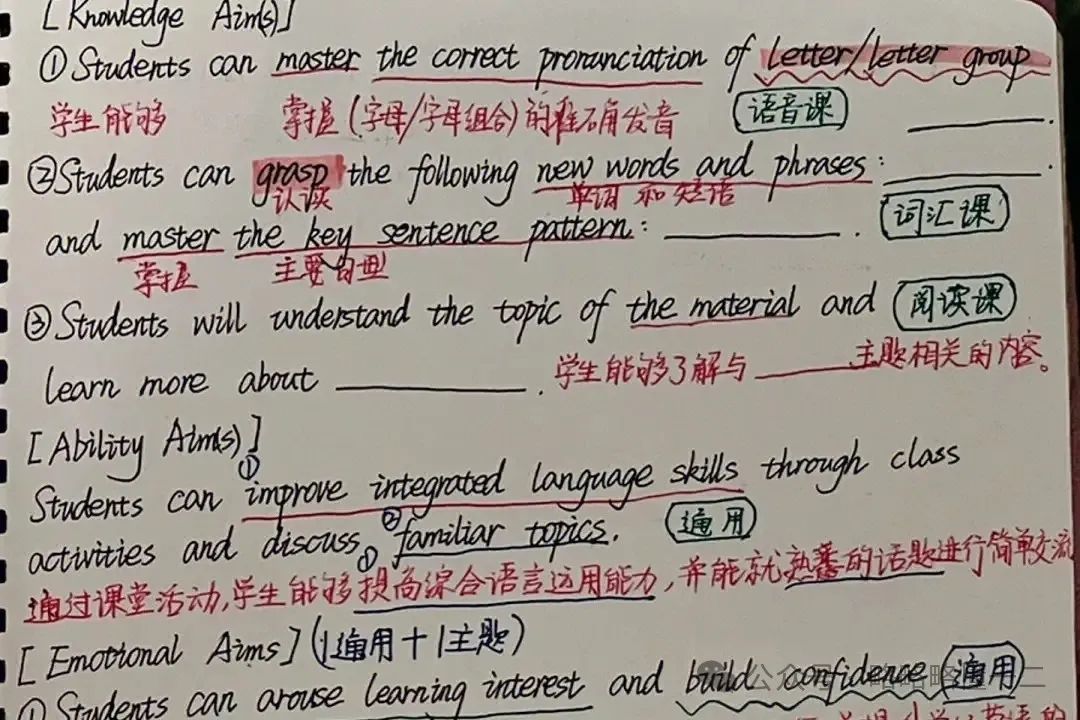 [Knowledge Aim(s)]
①Students can master the correct pronunciation of letter/letter group
学生能够 掌握(字母/字母组合)的准确发音 语音课 ________.
②Students can grasp the following new words and phrases: ________.
认读 单词 和 短语
and master the key sentence pattern: ________. 词汇课
掌握 主要句型
③Students will understand the topic of the material and 阅读课
learn more about ________. 学生能够了解与________主题相关的内容。
[Ability Aim(s)]
①
Students can improve integrated language skills through class
activities and discuss ② familiar topics. 通用
①
通过课堂活动,学生能够提高综合语言运用能力,并能就熟悉的话题进行简单交流
[Emotional Aims] (1通用+1主题)
①Students can arouse learning interest and build confidence 通用
公众号 二